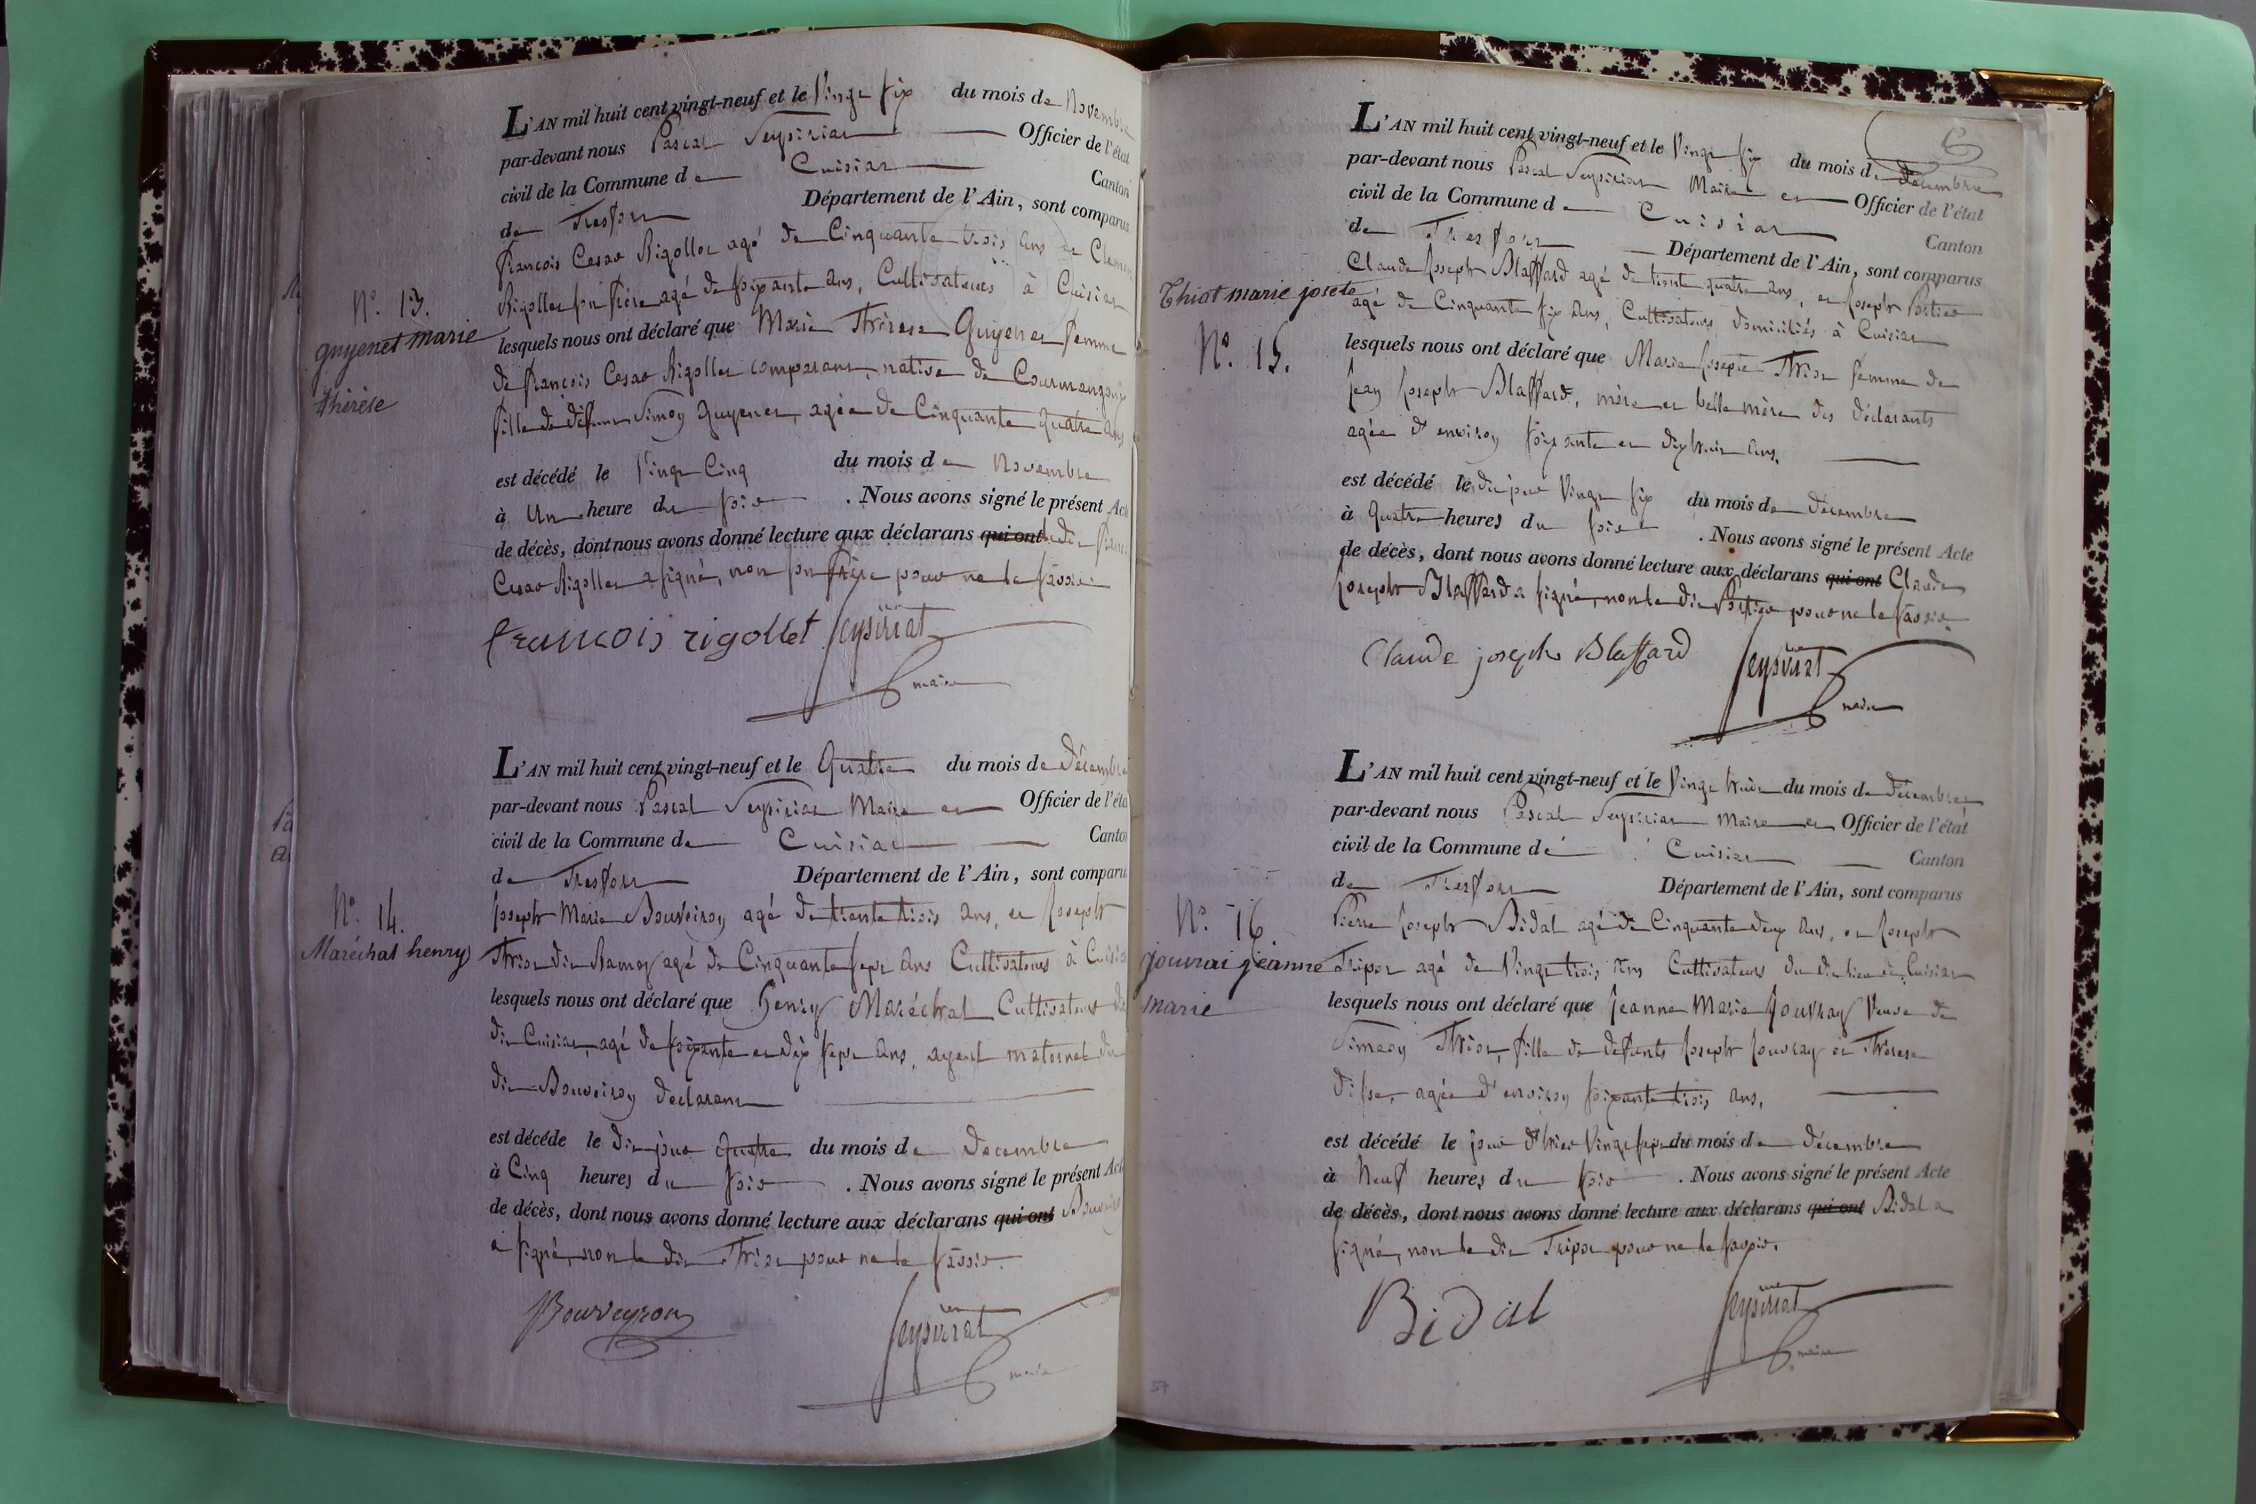 L'AN mil huit cent vingt-neuf et le Vingt six du mois de Novembre
par-devant nous Pascal Seysiriat Officier de l'état
civil de la Commune de Cuisiat Canton
de Treffort Département de l'Ain, sont comparus
françois Cesar Rigollet agé de Cinquante trois ans et
Rigollet son frère agé de soixante ans, Cultivateurs à Cuisiat
N.º 13.
guyenet marie
thérèse
lesquels nous ont déclaré que Marie Thérèse Guyenet femme
de françois Cesar Rigollet comparant, native de Courmangoux
fille de défunt Simon Guyenet, agée de Cinquante quatre ans
est décédé le Vingt Cinq du mois de Novembre
à Une heure du soir . Nous avons signé le présent Acte
de décès, dont nous avons donné lecture aux déclarans qui ont ledit
Cesar Rigollet a signé, non son frère pour ne le savoir
francois rigollet Seysiriat
maire
L'AN mil huit cent vingt-neuf et le Quatre du mois de Décembre
par-devant nous Pascal Seysiriat Maire et Officier de l'état
civil de la Commune de Cuisiat Canton
de Treffort Département de l'Ain, sont comparus
N.º 14.
Maréchal henry
Joseph Marie Bouveiron agé de trente trois ans, et Joseph
Thiot dit Ramot agé de Cinquante sept ans Cultivateurs à Cuisiat
lesquels nous ont déclaré que Henry Maréchal Cultivateur du
dit Cuisiat, agé de soixante et dix sept ans, ayeul maternel du
dit Bouveiron déclarant
est décédé le dit jour quatre du mois de Décembre
à Cinq heures du soir . Nous avons signé le présent Acte
de décès, dont nous avons donné lecture aux déclarans qui ont Bouveiron
a signé, non le dit Thiot pour ne le savoir.
Bouveyron Seysiriat
maire
L'AN mil huit cent vingt-neuf et le Vingt six du mois de Décembre
par-devant nous Pascal Seysiriat Maire et Officier de l'état
civil de la Commune de Cuisiat Canton
de Treffort Département de l'Ain, sont comparus
Claude Joseph Blaffard agé de trente quatre ans, et Joseph Portier
Thiot marie josete
agé de Cinquante six ans, Cultivateurs domiciliés à Cuisiat
N.º 15.
lesquels nous ont déclaré que Marie Josepte Thiot femme de
Jean Joseph Blaffard, mère et belle mère des déclarants
agée d'environ soixante et dix huit ans.
est décédé le du jour Vingt six du mois de Décembre
à Quatre heures du soir . Nous avons signé le présent Acte
de décès, dont nous avons donné lecture aux déclarans qui ont Claude
Joseph Blaffard a signé, non le dit Portier pour ne le savoir.
Claude joseph Blaffard Seysiriat
maire
L'AN mil huit cent vingt-neuf et le Vingt huit du mois de Décembre
par-devant nous Pascal Seysiriat Maire et Officier de l'état
civil de la Commune de Cuisiat Canton
de Treffort Département de l'Ain, sont comparus
N.º 16.
jouvrai jeanne
marie
Pierre Joseph Bidal agé de Cinquante deux ans, et Joseph
Tripoz agé de Vingt trois ans Cultivateurs du dit lieu de Cuisiat
lesquels nous ont déclaré que Jeanne Marie Jouvray Veuve de
Simeon Thiot, fille de défunts Joseph Jouvray et Thérèse
agée d'environ soixante trois ans.
est décédé le jour d'hier Vingt sept du mois de décembre
à Neuf heures du soir . Nous avons signé le présent Acte
de décès, dont nous avons donné lecture aux déclarans qui ont Bidal a
signé, non le dit Tripoz pour ne le savoir.
Bidal Seysiriat
maire
57